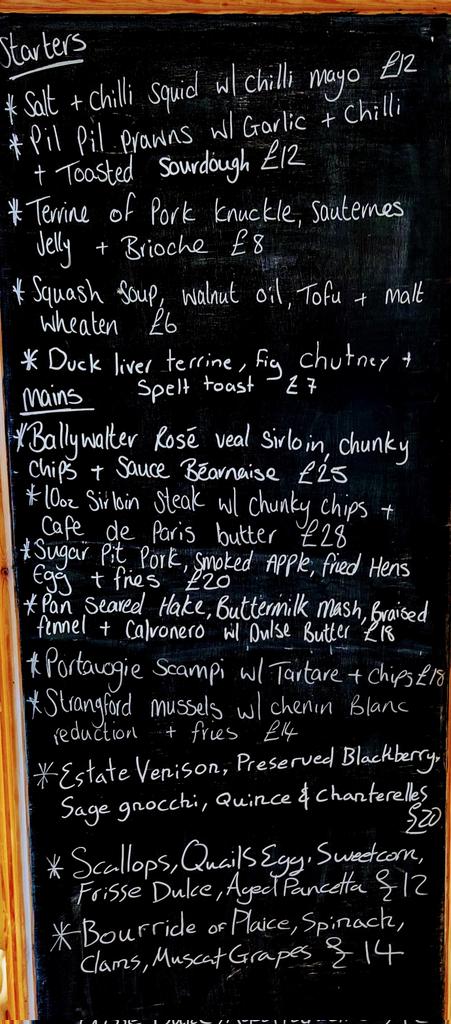 Starters
* Salt + chilli squid w/ chilli mayo £12
* Pil Pil prawns w/ Garlic + Chilli
+ Toasted Sourdough £12
* Terrine of Pork knuckle, Sauternes
Jelly + Brioche £8
* Squash Soup, walnut oil, Tofu + malt
wheaten £6
* Duck liver terrine, fig chutney +
Spelt toast £7
Mains
* Ballywalter Rosé veal Sirloin, chunky
chips + Sauce Béarnaise £25
* 10oz Sirloin Steak w/ Chunky chips +
Cafe de Paris butter £28
* Sugar Pit Pork, Smoked Apple, fried Hens
Egg + fries £20
* Pan Seared Hake, Buttermilk Mash, Braised
fennel + Calvonero w/ Dulse Butter £18
* Portavogie Scampi w/ Tartare + chips £18
* Strangford mussels w/ chenin Blanc
reduction + fries £14
* Estate Venison, Preserved Blackberry,
Sage gnocchi, Quince & Chanterelles
£20
* Scallops, Quails Egg, Sweetcorn,
Frisse Dulce, Aged Pancetta £12
* Bourride of Plaice, Spinach,
Clams, Muscat Grapes £14